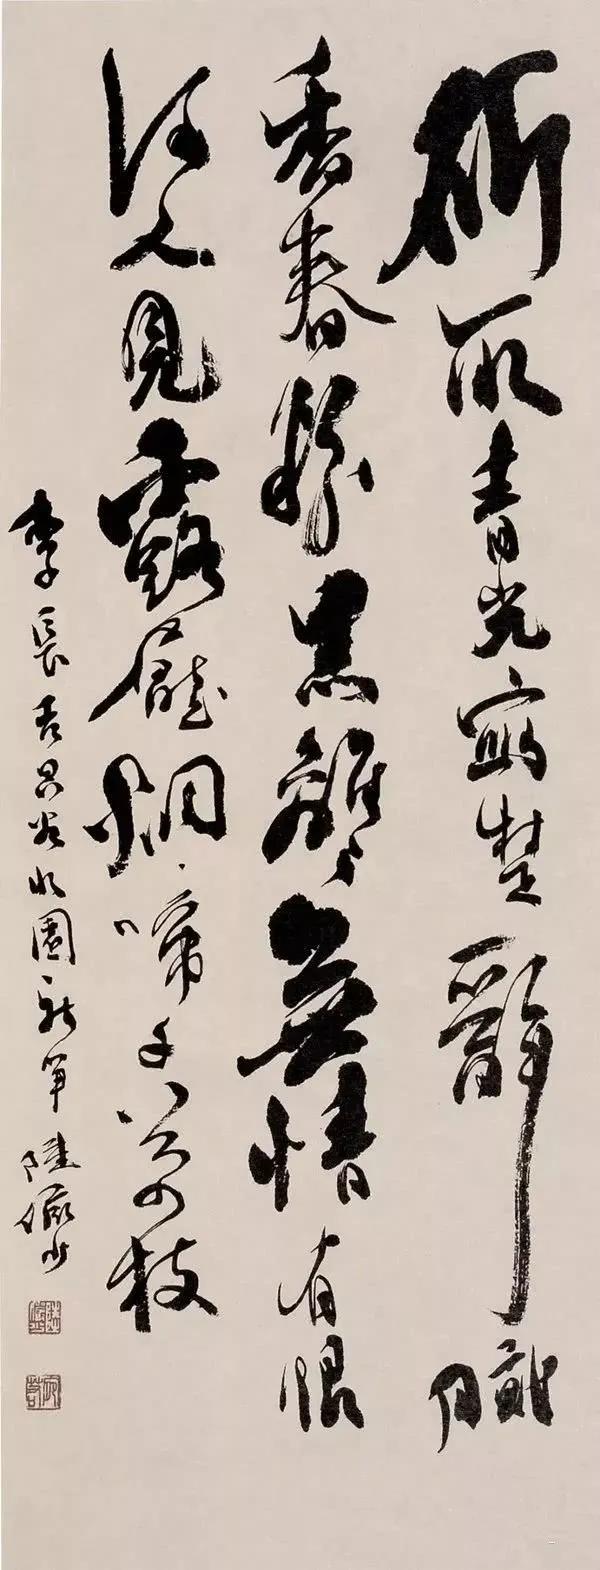 斫取青光寫楚辭膩
香春粉黑離〻無情有恨
何人見露壓烟啼千萬枝
李長吉昌谷北園新筍 陸儼少